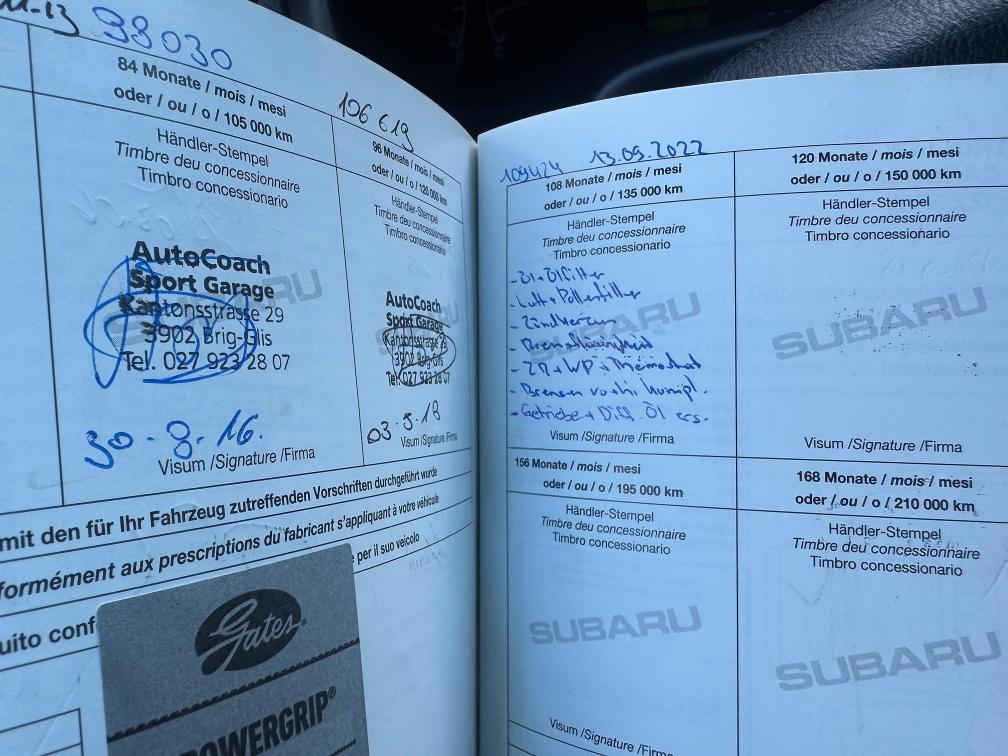 98030
84 Monate / mois / mesi
oder / ou / o / 105 000 km
Händler-Stempel
Timbre deu concessionnaire
Timbro concessionario
SUBARU
AutoCoach
Sport Garage
Kantonsstrasse 29
3902 Brig-Glis
Tel. 027 923 28 07
30.8.16.
Visum /Signature /Firma
106 619
96 Monate / mois / mesi
oder / ou / o / 120 000 km
Händler-Stempel
Timbre deu concessionnaire
Timbro concessionario
AutoCoach
Sport Garage
Kantonsstrasse 29
3902 Brig-Glis
Tel. 027 923 28 07
Visum /Signature /Firma
mit den für Ihr Fahrzeug zutreffenden Vorschriften durchgeführt wurde
formément aux prescriptions du fabricant s'appliquant à votre véhicule
per il suo veicolo
Gates
POWERGRIP®
109424 13.09.2022
108 Monate / mois / mesi
oder / ou / o / 135 000 km
Händler-Stempel
Timbre deu concessionnaire
Timbro concessionario
SUBARU
- Öl + Ölfilter
- Luft + Pollenfilter
- Zündkerzen
- Bremsflüssigkeit
- ZR + WP + Thermostat
- Bremsen
- Getriebe + Diff. Öl ers.
Visum /Signature /Firma
120 Monate / mois / mesi
oder / ou / o / 150 000 km
Händler-Stempel
Timbre deu concessionnaire
Timbro concessionario
SUBARU
Visum /Signature /Firma
156 Monate / mois / mesi
oder / ou / o / 195 000 km
Händler-Stempel
Timbre deu concessionnaire
Timbro concessionario
SUBARU
Visum /Signature /Firma
168 Monate / mois / mesi
oder / ou / o / 210 000 km
Händler-Stempel
Timbre deu concessionnaire
Timbro concessionario
SUBARU